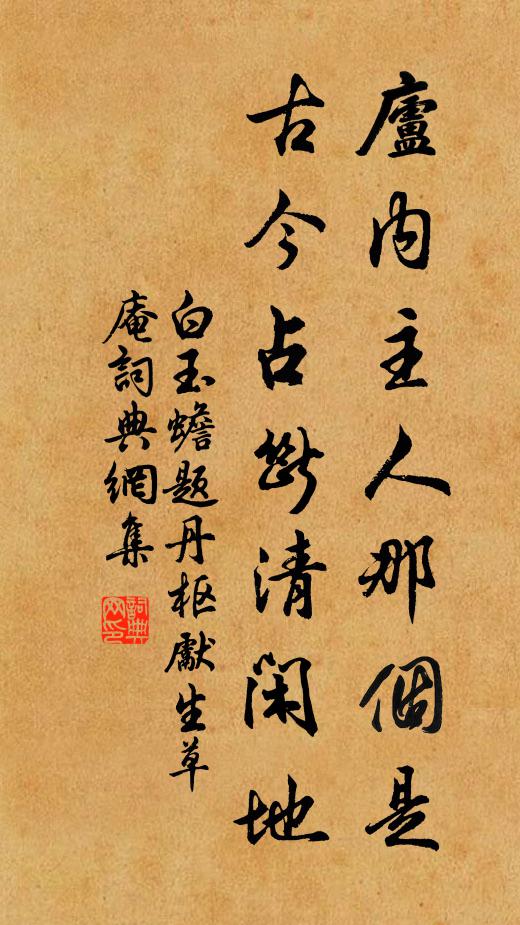 廬内主人那個是
古今占斷清閑地
白玉蟾题丹枢獻生草
庵詞典網集
詞典网印